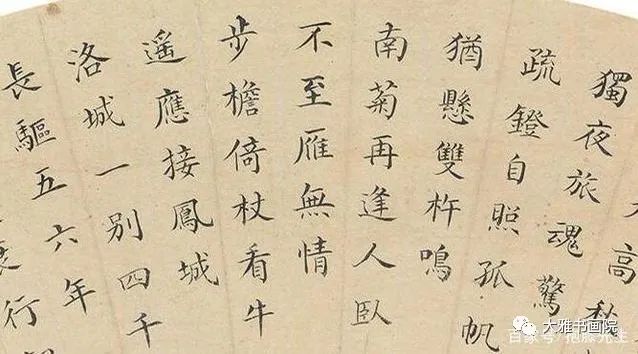 高秋
獨夜旅魂驚
疏鐙自照孤帆
猶懸雙杵鳴
南菊再逢人臥
不至雁無情
步檐倚杖看牛
遙應接鳳城
洛城一別四千
長驅五六年
行
大雅书画院
百家号